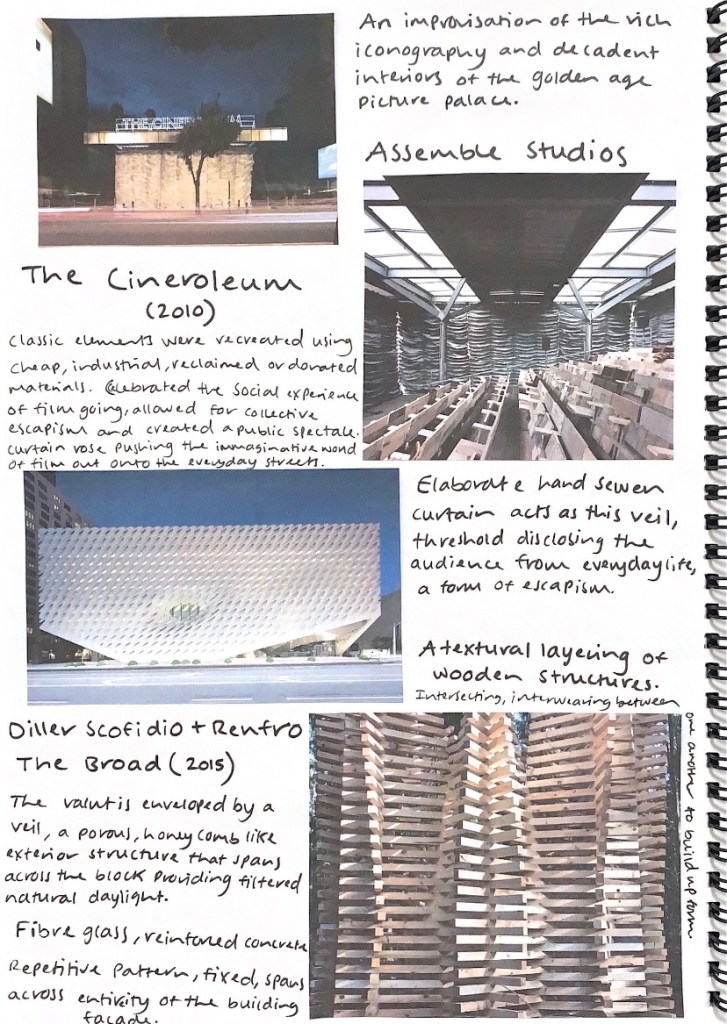 An improvisation of the rich
iconography and decadent
interiors of the golden age
picture palace.
Assemble Studios
THE CINE
The Cineroleum
(2010)
Classic elements were recreated using
cheap, industrial, reclaimed or donated
materials. Celebrated the social experience
of film going, allowed for collective
escapism and created a public spectale.
curtain rose pushing the immaginative world
of film out onto the everyday streets.
Elaborate hand sewen
curtain acts as this veil,
threshold disclosing the
audience from everyday life,
a form of escapism.
A textural layering of
wooden structures.
Intersecting, interwearing between
one another to build up form
Diller Scofidio + Renfro
The Broad (2015)
The valut is enveloped by a
veil, a porous, honey comb like
exterior structure that spans
across the block providing filtered
natural daylight.
Fibre glass, reinforced concrete
Repetitive pattern, fixed, spans
across entirity of the building
facade.